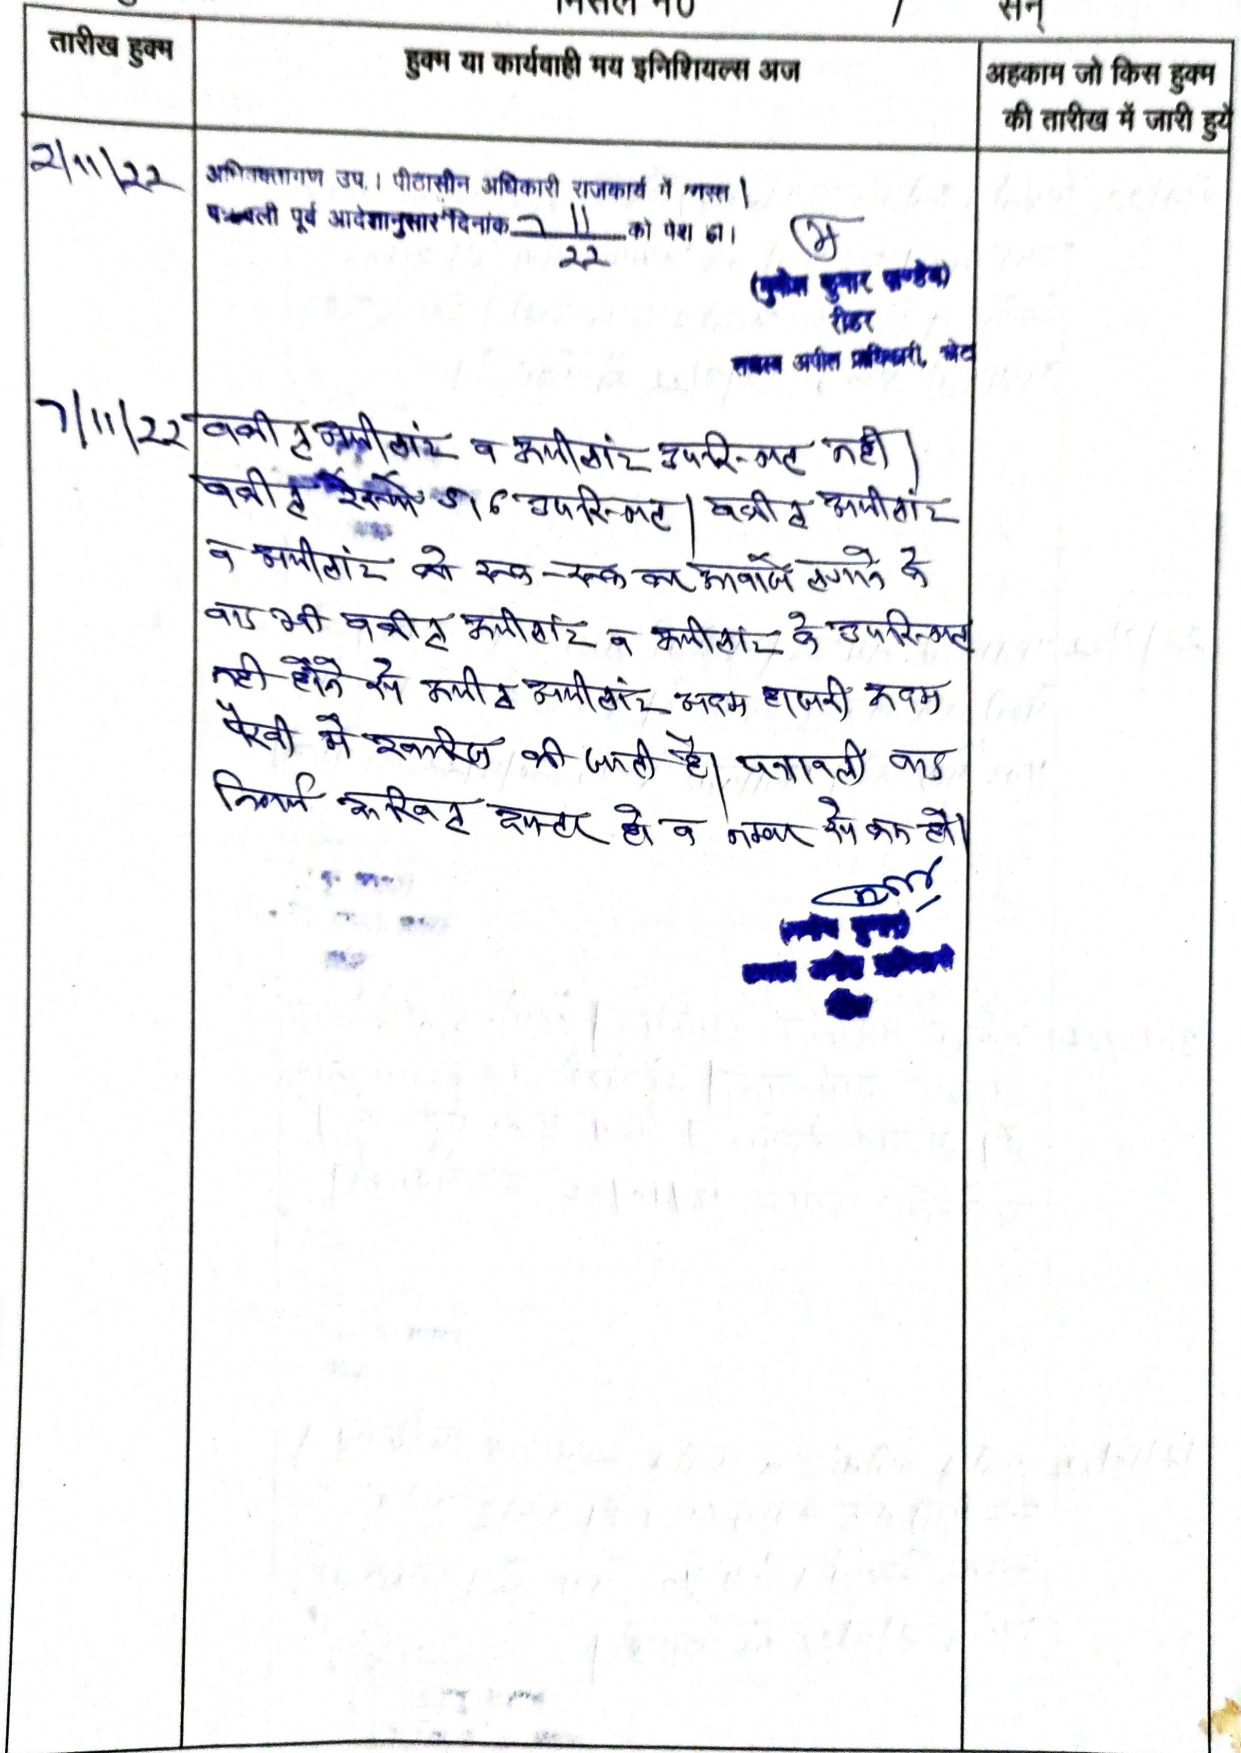 मिसल नं० / सन्
तारीख हुक्म
हुक्म या कार्यवाही मय इनिशियल्स अज
अहकाम जो किस हुक्म
की तारीख में जारी हुये
2/11/22
अभिवक्तागण उप.। पीठासीन अधिकारी राजकार्य में व्यस्त।
पत्रावली पूर्व आदेशानुसार दिनांक 7/11/22 को पेश हो।
(मुकेश कुमार पाण्डेय)
रीडर
राजस्व अपील प्राधिकारी, कोटा
7/11/22
वकील अपीलांट व अपीलांट उपस्थित नही।
वकील रेस्पो 5,6 उपस्थित। वकील अपीलांट
व अपीलांट को रुक-रुक कर आवाजें लगाने के
बाद भी वकील अपीलांट व अपीलांट के उपस्थित
नही होने से अपील अपीलांट अदम हाजरी अदम
पैरवी में खारिज की जाती है। पत्रावली बाद
दाखिल दफ्तर हो व नम्बर से कम हो।
अपील